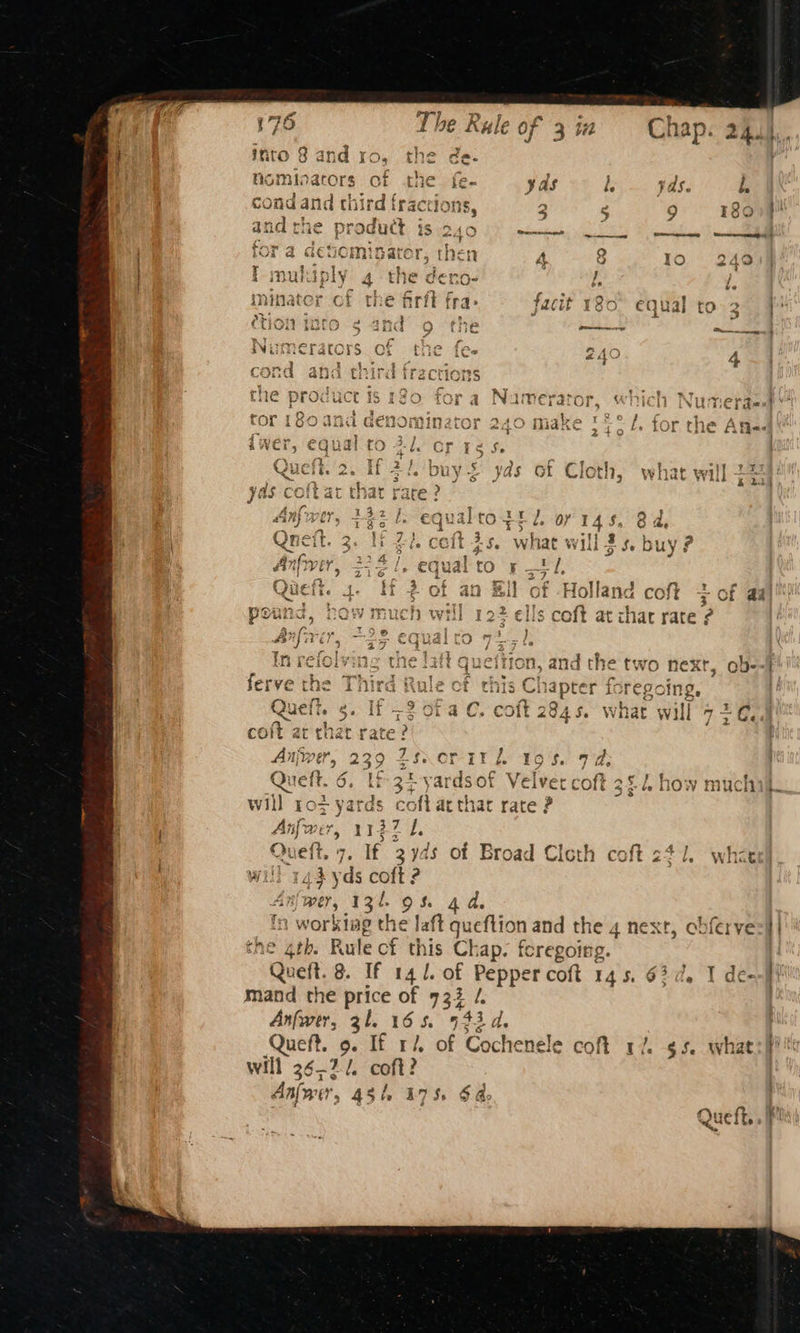 176 The Rule of 3 in Chap. 24.
into 8 and 10, the de-
nominators of the se-
cond and third fractions,
and the product is 240
for a denominator, then
I multiply 4 the deno-
minator of the first fra-
ction into 5 and 9 the
Numerators of the se-
cond and third fractions
yds l. yds. l.
3 5 9 180
4 8 10 240
l. l.
facit 180 equal to 3
240 4
the product is 180 for a Numerator, which Numera-
tor 180 and denominator 240 make l. for the An-
swer, equal to l. or 15 s.
Quest. 2. If l. buy yds of Cloth, what will
yds cost at that rate?
Answer, l. equal to l. or 14 s. 8 d.
Quest. 3. If l. cost s. what will s. buy?
Answer, l. equal to l.
Quest. 4. If of an Ell of Holland cost of a
pound, how much will 12 ells cost at that rate?
Answer, equal to l.
In resolving the last question, and the two next, ob-
serve the Third Rule of this Chapter foregoing.
Quest. 5. If of a C. cost 284 s. what will 7 C.
cost at that rate?
Answer, 239 s. or 11 l. 19 s. 7 d.
Quest. 6. If 3 yards of Velvet cost l. how much
will 10 yards cost at that rate?
Answer, l.
Quest. 7. If 3 yds of Broad Cloth cost 2 l. what
will 14 yds cost?
Answer, 13 l. 9 s. 4 d.
In working the last question and the 4 next, observe
the 4th. Rule of this Chap. foregoing.
Quest. 8. If 14 l. of Pepper cost 14 s. 6 d. I de-
mand the price of 73 l.
Answer, 3 l. 16 s. d.
Quest. 9. If 1 l. of Cochenele cost 1 l. 5 s. what
will 36 l. cost?
Answer, 45 l. 17 s. 6 d.
Quest.